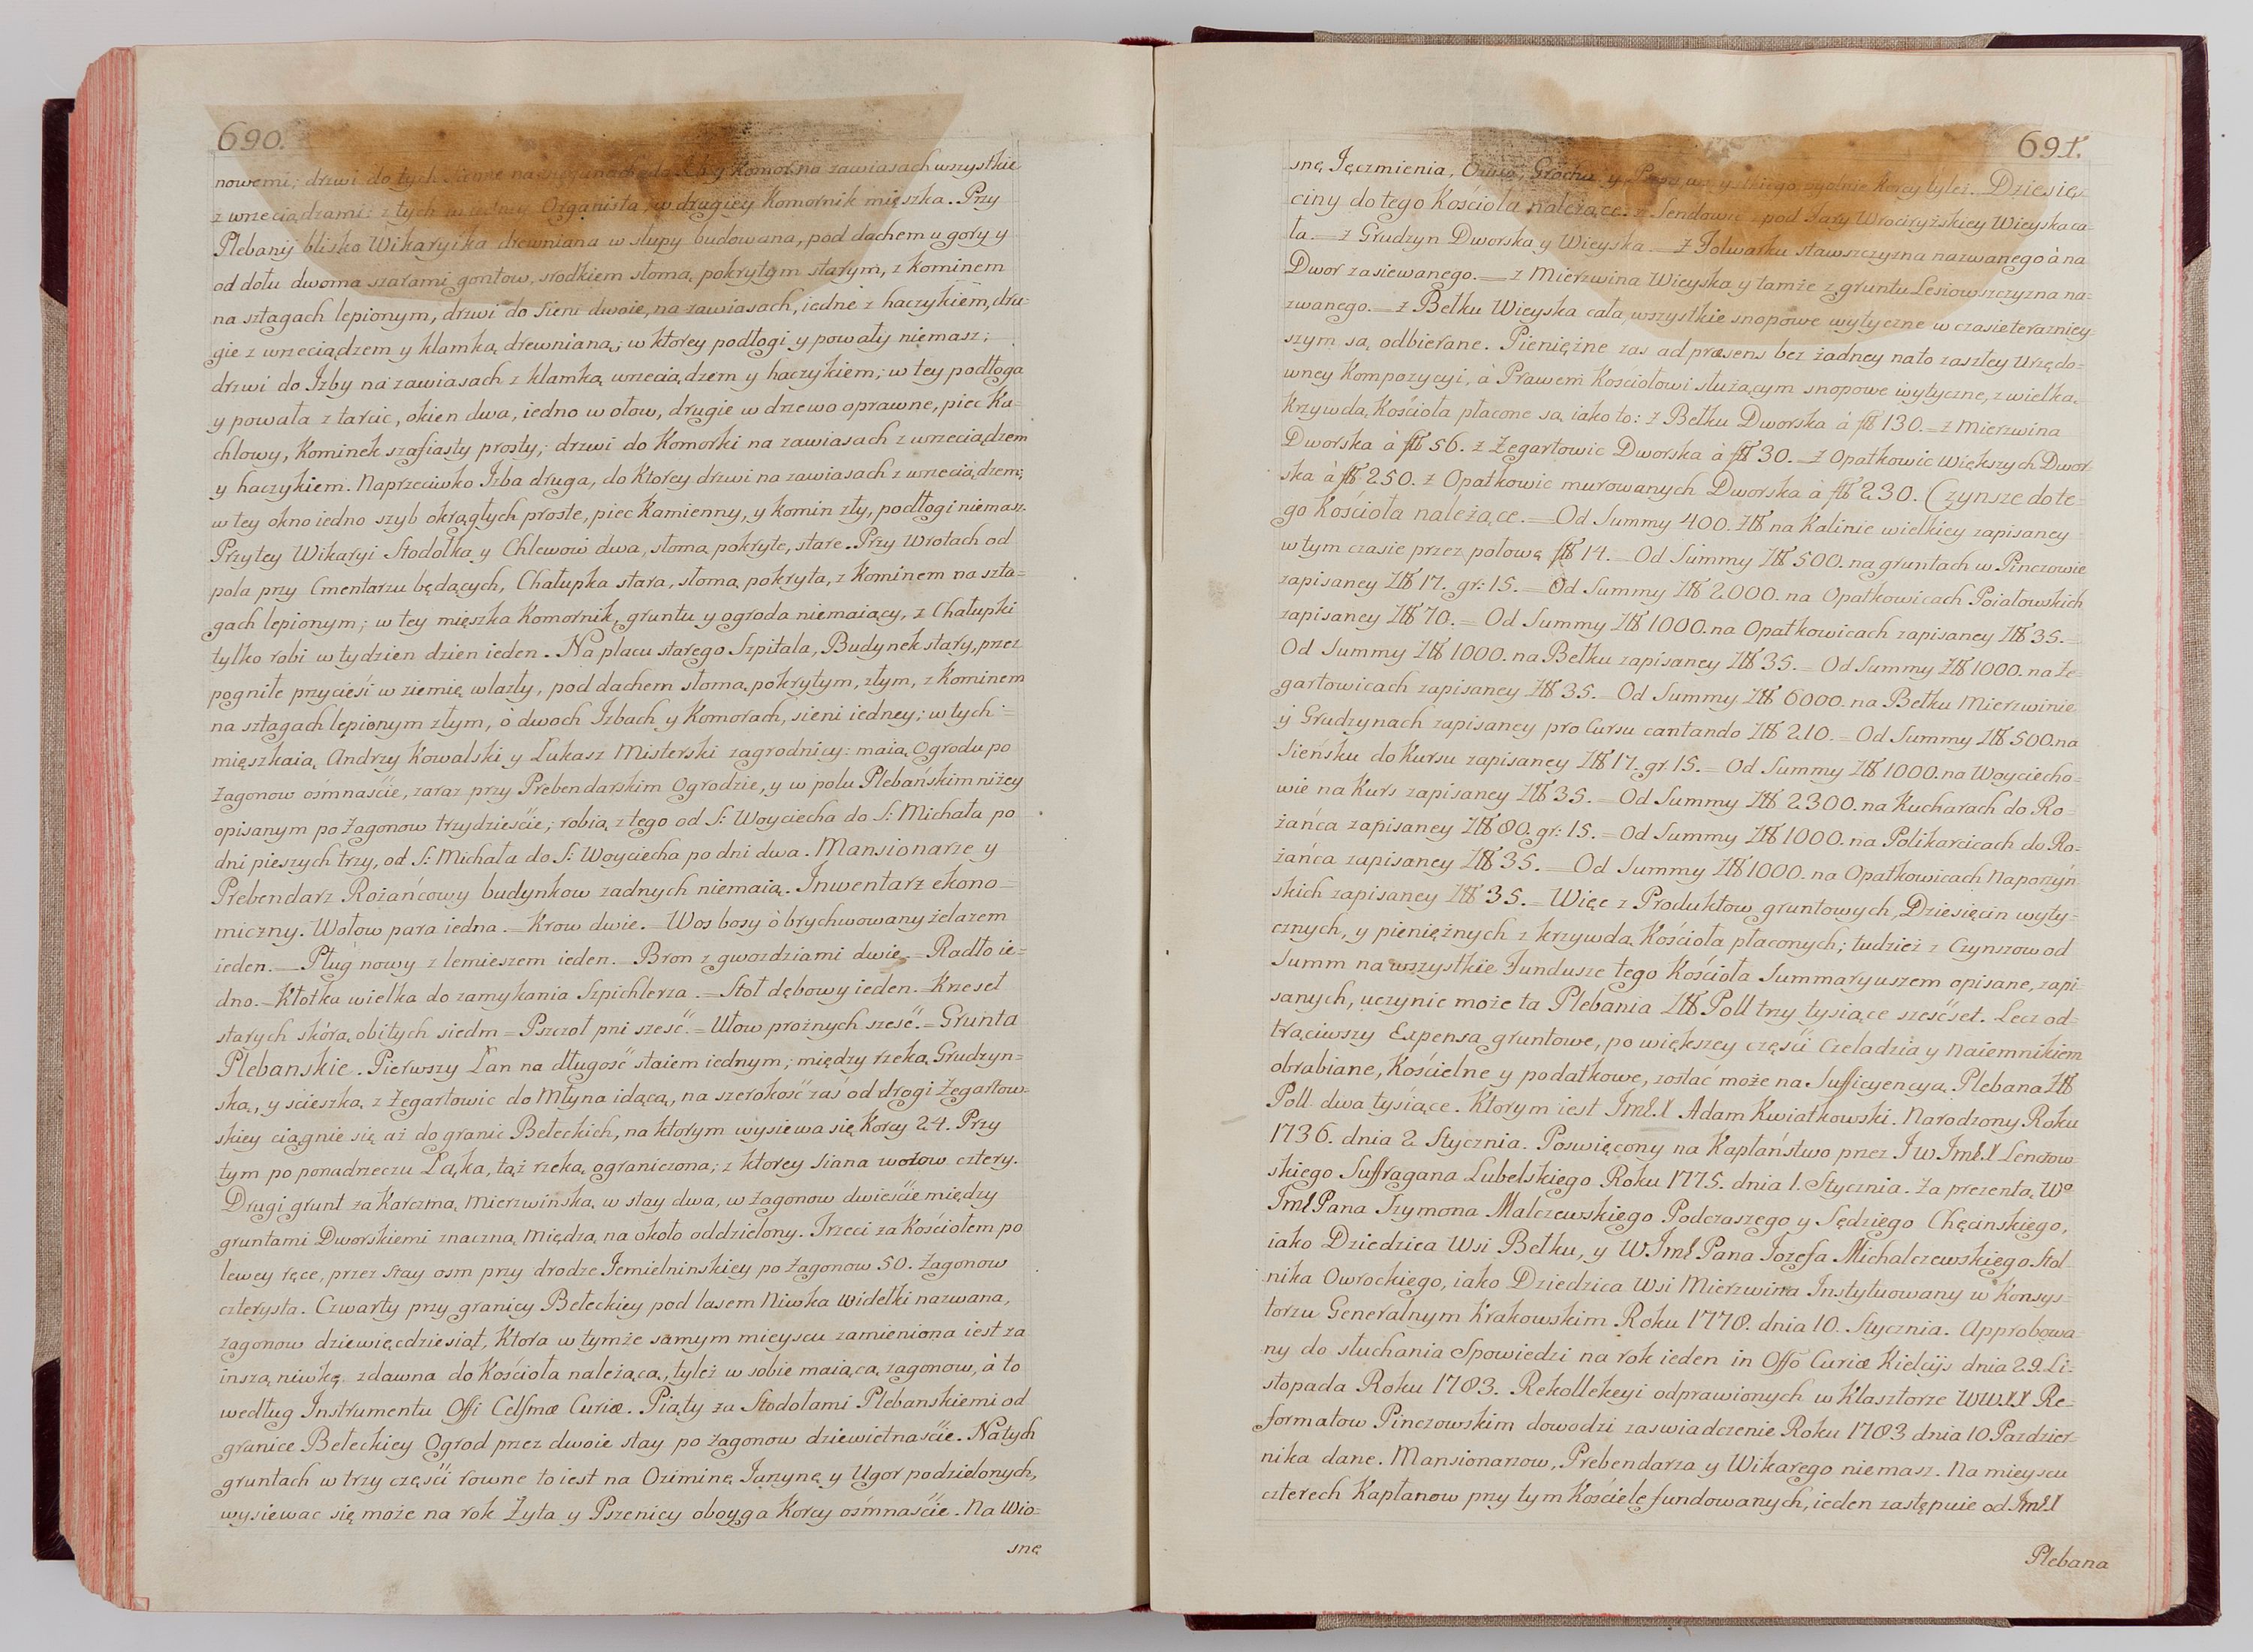 690.
nowemi; drzwi do tych Sienne na y Komor na zawiasach wszystkie
z wrzeciądzami: z tych w iedney Organista, w drugiey Komornik mięszka. Przy
Plebanij blisko Wikaryika drewniana w słupy budowana, pod dachem u gory y
od dołu dwoma szarami gontow, srodkiem słomą pokrytym starym, z kominem
na sztagach lepionym, drzwi do Sieni dwoie, na zawiasach, iedne z haczykiem, dru=
gie z wrzeciądzem y klamką drewnianą; w ktorey podłogi y powały niemasz;
drzwi do Izby na zawiasach z klamką wrzeciądzem y haczykiem; w tey podłoga
y powała z tarcic, okien dwa, iedno w ołow, drugie w drzewo oprawne, piec Ka=
chlowy, Kominek szafiasty prosty; drzwi do Komorki na zawiasach z wrzeciądzem
y haczykiem. Naprzeciwko Izba druga, do Ktorey drzwi na zawiasach z wrzeciądzem;
w tey okno iedno szyb okrągłych proste, piec Kamienny, y komin zły, podłogi niemasz.
Przy tey Wikaryi Stodołka y Chlewow dwa, słomą pokryte, stare. Przy Wrotach od
pola przy Cmentarzu będących, Chałupka stara, słomą pokryta, z Kominem na szta=
gach lepionym; w tey mięszka Komornik, gruntu y ogroda niemaiący, z Chałupki
tylko robi w tydzien dzien ieden. Na placu starego Szpitala, Budynek stary, przez
pogniłe przycieśi w ziemię wlazły, pod dachem słomą pokrytym, złym, z Kominem
na sztagach lepionym złym, ò dwoch Izbach y Komorach, sieni iedney; w tych =
mięszkaią Andrzy Kowalski y Łukasz Misterski zagrodnicy: maią Ogrodu po
Zagonow ośmnaście, zaraz przy Prebendarskim Ogrodzie, y w polu Plebańskim niżey
opisanym po Zagonow trzydzieście; robią z tego od S: Woyciecha do S: Michała po
dni pieszych trzy, od S: Michała do S: Woyciecha po dni dwa. Mansionarze y
Prebendarz Rożańcowy budynkow żadnych niemaią. Inwentarz ekono=
miczny. Wołow para iedna. = Krow dwie. = Wos bosy òbrychwowany żelazem
ieden. = Pług nowy z lemieszem ieden. = Bron z gwozdziami dwie. = Radło ie=
dno. = Kłotka wielka do zamykania Szpichlerza. = Stoł dębowy ieden. = Krzeseł
starych skórą obitych siedm = Pszczoł pni sześć. = Ulow prożnych sześć. = Grunta
Plebanskie. Pierwszy Łan na długość staiem iednym; między rzeką Grudzyn=
ską, y scieszką z Zegartowic do Młyna idącą, na szerokość zaś od drogi Zegartow=
skiey ciągnie się aż do granic Bełeckich, na ktorym wysiewa się Korcy 24. Przy
tym po ponadrzeczu Łąka, tąż rzeką ograniczona; z ktorey Siana wozow cztery.
Drugi grunt za Karczmą Mierzwinską w stay dwa, w zagonow dwieście między
gruntami Dworskiemi znaczną Miedzą na około oddzielony. Trzeci za Kościołem po
lewey ręce, przez stay osm przy drodze Jemielninskiey po Zagonow 50. Zagonow
czterysta. Czwarty przy granicy Bełeckiey pod lasem Niwka Widełki nazwana,
zagonow dziewięcdziesiąt, Ktora w tymże samym mieyscu zamieniona iest za
inszą niwkę zdawna do Kościoła należącą, tyleż w sobie maiącą zagonow, à to
według Instrumentu Offi Celsmæ Curiæ. Piąty za Stodołami Plebanskiemi od
granice Bełeckiey Ogrod przez dwoie stay po Zagonow dziewiętnaście. Na tych
gruntach w trzy części rowne to iest na Oziminę Jarzynę y Ugor podzielonych,
wysiewac się może na rok Żyta y Pszenicy oboyga Korcy ośmnaście. Na Wio=
snę
691.
snę Jęczmienia, Owsa, Grochu y wszystkiego ogolnie Korcy tyleż. Dziesię=
ciny do tego Kościoła należące: z Sendowic pod Fary Wrociryżskiey Wieyska ca=
ła. = z Grudzyn Dworska y Wieyska. = z Folwarku Stawszczyzna nazwanego à na
Dwor zasiewanego. = z Mierzwina Wieyska y tamże z gruntu Lesiowszczyzna na=
zwanego. = z Bełku Wieyska cała, wszystkie snopowe wytyczne w czasie terazniey=
szym są odbierane. Pieniężne zas ad præsens bez żadney nato zaszłey Urzędo=
wney Kompozycyi, à Prawem Kościołowi służącym snopowe wytyczne, z wielką
Krzywdą Kościoła płacone są iako to: z Bełku Dworska à fl 130. = z Mierzwina
Dworska à fl 56. z Zegartowic Dworska à fl 30. = z Opatkowic Większych Dwor=
ska à fl 250. z Opatkowic murowanych Dworska à fl 230. Czynsze do te=
go Kościoła należące. = Od Summy 400. Złł na Kalinie wielkiey zapisaney
w tym czasie przez połowę fl 14. = Od Summy Złł 500. na gruntach w Pinczowie
zapisaney Złł 17. gr: 15. = Od Summy Złł 2000. na Opatkowicach Poiałowskich
zapisaney Złł 70. = Od Summy Złł 1000. na Opatkowicach zapisaney Złł 35. =
Od Summy Złł 1000. na Bełku zapisaney Złł 35. = Od Summy Złł 1000. na Ze=
gartowicach zapisaney Złł 35. = Od Summy Złł 6000. na Bełku Mierzwinie
y Grudzynach zapisaney pro Cursu cantando Złł 210. = Od Summy Złł 500. na
Sieńsku do Kursu zapisaney Złł 17. gr. 15. = Od Summy Złł 1000. na Woyciecho=
wie na Kurs zapisaney Złł 35. = Od Summy Złł 2300. na Kucharach do Ro=
żańca zapisaney Złł 80. gr: 15. = Od Summy Złł 1000. na Polikarcicach do Ro=
żańca zapisaney Złł 35. = Od Summy Złł 1000. na Opatkowicach Naporzyń
skich zapisaney Złł 35. = Więc z Produktow gruntowych, Dziesięcin wyty=
cznych, y pieniężnych z krzywdą Kościoła płaconych; tudzież z Czynszow od
Summ na wszystkie Fundusze tego Kościoła Summaryuszem opisane, zapi=
sanych, uczynic może ta Plebania Złł Poll trzy tysiące sześćset. Lecz od=
trąciwszy Expensa gruntowe, po większey części Czeladzią y Naiemnikiem
obrabiane, Kościelne y podatkowe, zostać może na Sufficyencyą Plebana Złł
Poll. dwa tysiące. Ktorym iest JmłX Adam Kwiatkowski. Narodzony Roku
1736. dnia 2 Stycznia. Poswięcony na Kapłaństwo przez JW JmłX Lenczow
skiego Suffragana Lubelskiego Roku 1775. dnia 1. Stycznia. Za prezentą Wº
Jmł Pana Szymona Malczewskiego Podczaszego y Sędziego Chęcinskiego,
iako Dziedzica Wsi Bełku, y W Jmł Pana Jozefa Michalczewskiego Stol
nika Owrockiego, iako Dziedzica Wsi Mierzwina Instytuowany w Konsys=
torzu Generalnym Krakowskim Roku 1778. dnia 10. Stycznia. Approbowa
ny do słuchania Spowiedzi na rok ieden in Offo Curiæ Kielcijs dnia 29. Li=
stopada Roku 1783. Rekollekcyi odprawionych w Klasztorze WWXX Re=
formatow Pinczowskim dowodzi zaswiadczenie Roku 1783 dnia 10 Pazdzier=
nika dane. Mansionarzow, Prebendarza y Wikarego niemasz. Na mieyscu
czterech Kapłanow przy tym Kościele fundowanych, ieden zastępuie od JmłX
Plebana